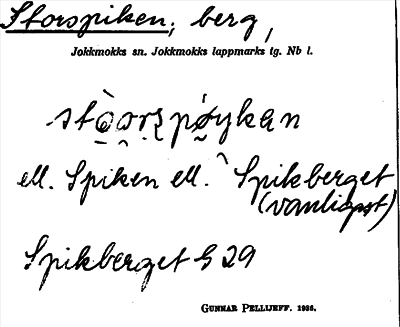 Storspiken, berg,
Jokkmokks sn. Jokkmokks lappmarks tg. Nb l.
ell. Spiken ell. Spikberget
(vanligst)
Spikberget G 29
GUNNAR PELLIJEFF. 1936.